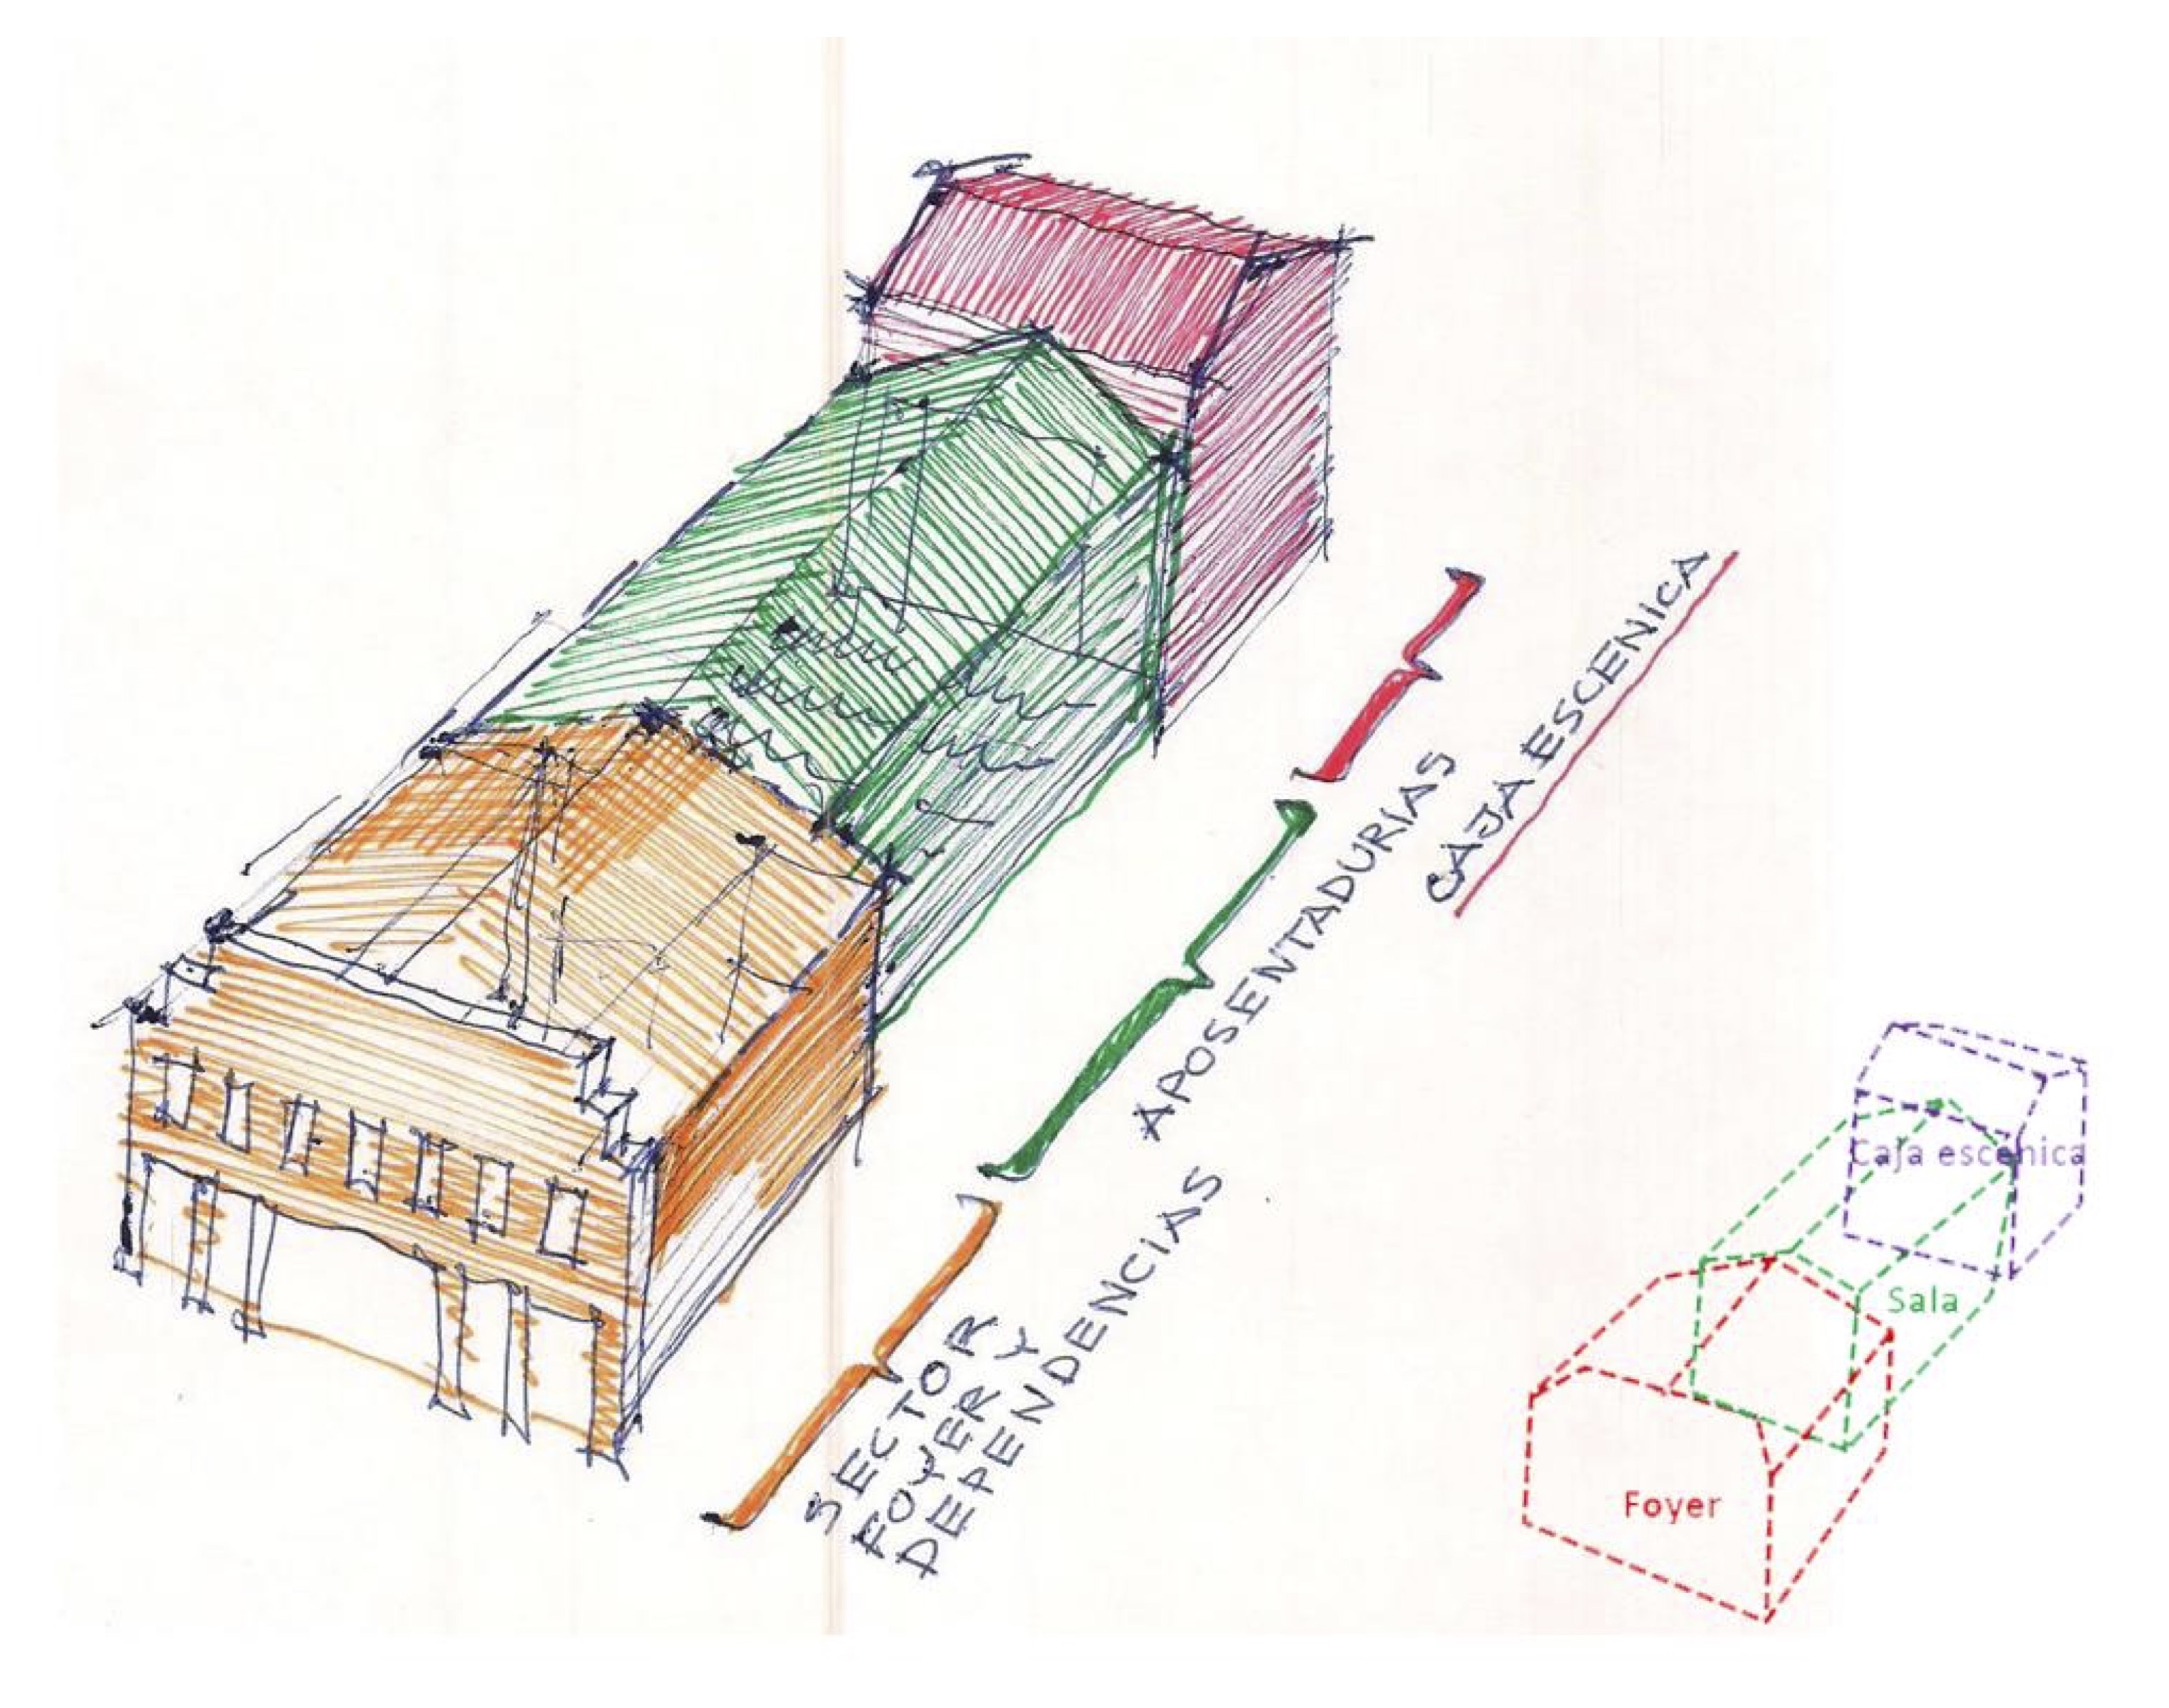 CAJA ESCENICA
APOSENTADURIAS
SECTOR
FOYER Y
DEPENDENCIAS
Caja escenica
Sala
Foyer